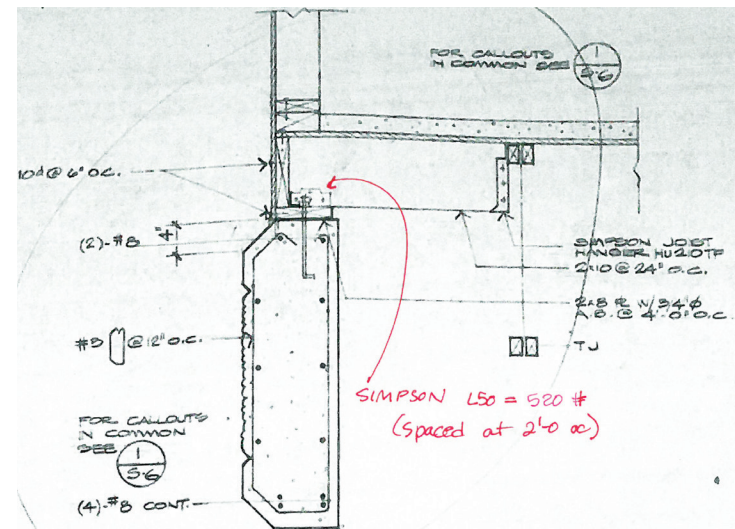 FOR CALLOUTS
IN COMMON SEE
1
5.6
10d @ 6" O.C.
(2)-#8
4"
SIMPSON JOIST
HANGER HU210TF
2x10 @ 24" O.C.
2x8 ℄ W/ 3/4"φ
A.B. @ 4'-0" O.C.
#3 @ 12" O.C.
TJ
SIMPSON L50 = 520 #
(Spaced at 2'-0 oc)
FOR CALLOUTS
IN COMMON
SEE
1
5.6
(4)-#8 CONT.